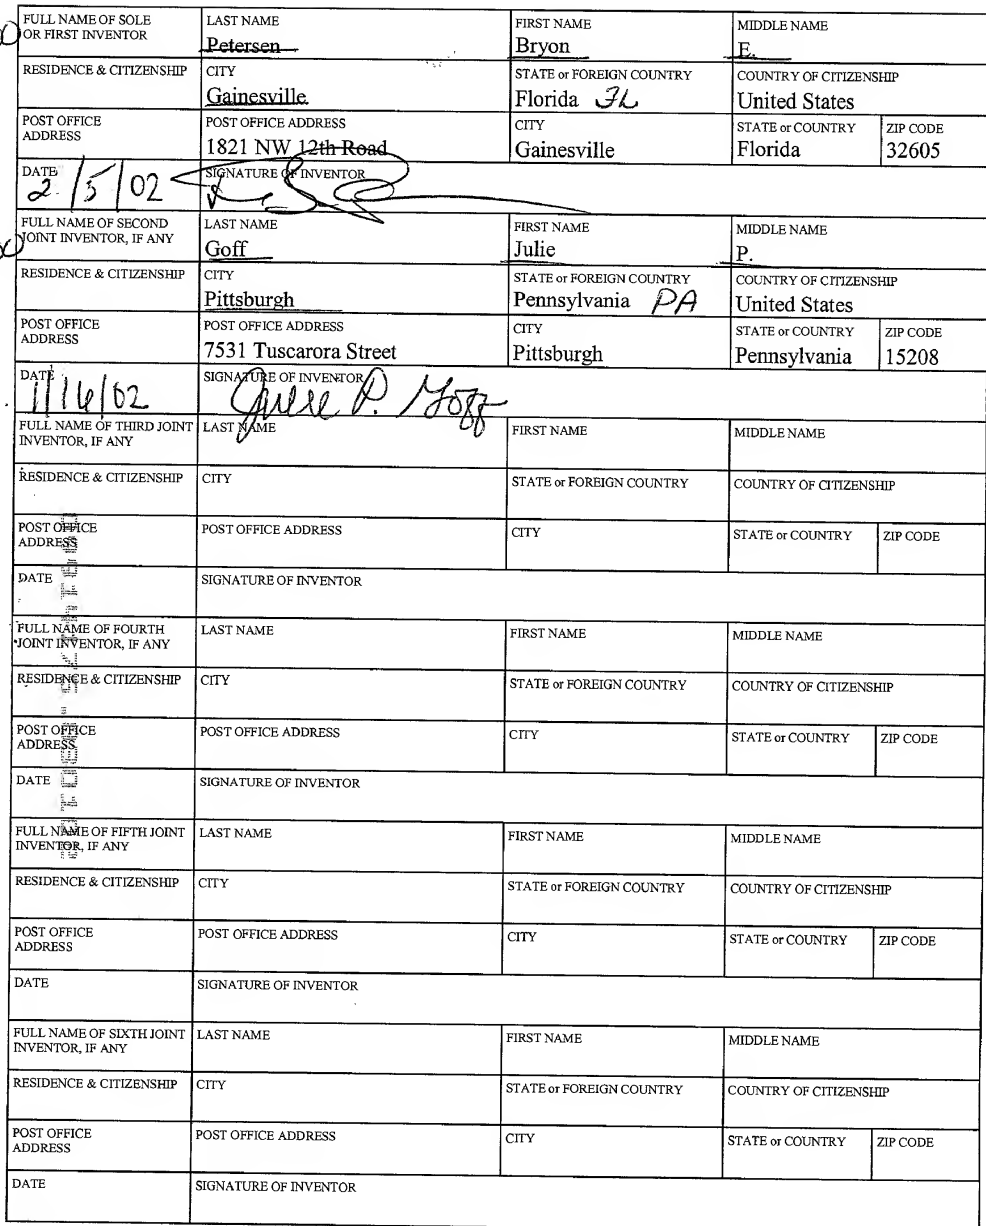 FULL NAME OF SOLE OR FIRST INVENTOR
LAST NAME
Petersen
FIRST NAME
Bryon
MIDDLE NAME
E.
RESIDENCE & CITIZENSHIP
CITY
Gainesville
STATE or FOREIGN COUNTRY
Florida FL
COUNTRY OF CITIZENSHIP
United States
POST OFFICE ADDRESS
POST OFFICE ADDRESS
1821 NW 12th Road
CITY
Gainesville
STATE or COUNTRY
Florida
ZIP CODE
32605
DATE
2/5/02
SIGNATURE OF INVENTOR
FULL NAME OF SECOND JOINT INVENTOR, IF ANY
LAST NAME
Goff
FIRST NAME
Julie
MIDDLE NAME
P.
RESIDENCE & CITIZENSHIP
CITY
Pittsburgh
STATE or FOREIGN COUNTRY
Pennsylvania PA
COUNTRY OF CITIZENSHIP
United States
POST OFFICE ADDRESS
POST OFFICE ADDRESS
7531 Tuscarora Street
CITY
Pittsburgh
STATE or COUNTRY
Pennsylvania
ZIP CODE
15208
DATE
1/16/02
SIGNATURE OF INVENTOR
Julie P. Goff
FULL NAME OF THIRD JOINT INVENTOR, IF ANY
LAST NAME
FIRST NAME
MIDDLE NAME
RESIDENCE & CITIZENSHIP
CITY
STATE or FOREIGN COUNTRY
COUNTRY OF CITIZENSHIP
POST OFFICE ADDRESS
POST OFFICE ADDRESS
CITY
STATE or COUNTRY
ZIP CODE
DATE
SIGNATURE OF INVENTOR
FULL NAME OF FOURTH JOINT INVENTOR, IF ANY
LAST NAME
FIRST NAME
MIDDLE NAME
RESIDENCE & CITIZENSHIP
CITY
STATE or FOREIGN COUNTRY
COUNTRY OF CITIZENSHIP
POST OFFICE ADDRESS
POST OFFICE ADDRESS
CITY
STATE or COUNTRY
ZIP CODE
DATE
SIGNATURE OF INVENTOR
FULL NAME OF FIFTH JOINT INVENTOR, IF ANY
LAST NAME
FIRST NAME
MIDDLE NAME
RESIDENCE & CITIZENSHIP
CITY
STATE or FOREIGN COUNTRY
COUNTRY OF CITIZENSHIP
POST OFFICE ADDRESS
POST OFFICE ADDRESS
CITY
STATE or COUNTRY
ZIP CODE
DATE
SIGNATURE OF INVENTOR
FULL NAME OF SIXTH JOINT INVENTOR, IF ANY
LAST NAME
FIRST NAME
MIDDLE NAME
RESIDENCE & CITIZENSHIP
CITY
STATE or FOREIGN COUNTRY
COUNTRY OF CITIZENSHIP
POST OFFICE ADDRESS
POST OFFICE ADDRESS
CITY
STATE or COUNTRY
ZIP CODE
DATE
SIGNATURE OF INVENTOR